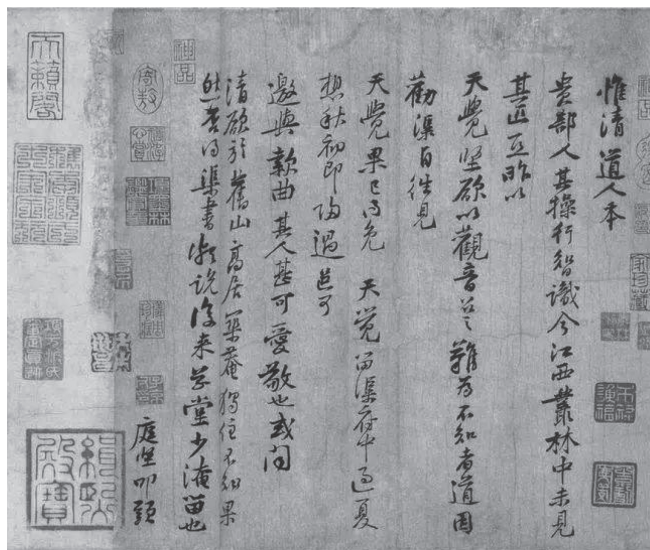 惟清道人本
貴部人其操行智識今江西叢林中未見
其匹亟昨以
天覺堅欲以觀音召之難為不知者道因
勸渠自往見
天覺果已得免 天覺留渠府中過夏
想秋初即歸過邑可
邀與款曲其人甚可愛敬也或聞
清欲於舊山高居築菴獨住不知果
然否得渠書頗說後來草堂少淹留也
庭堅叩頭
神品
寄敖
天籟閣
緝熙殿寶